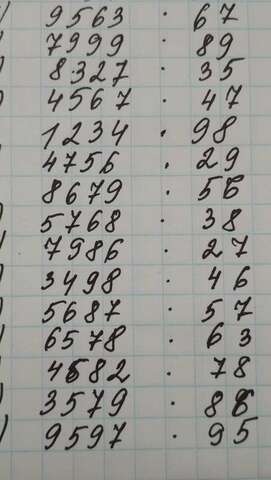 ) 9563 · 67
) 7999 · 89
) 8327 · 35
) 4567 · 47
1234 · 98
4756 · 29
8679 · 56
) 5768 · 38
) 7986 · 27
) 3498 · 46
) 5687 · 57
) 6578 · 63
) 4582 · 78
) 3579 · 86
) 9597 · 95